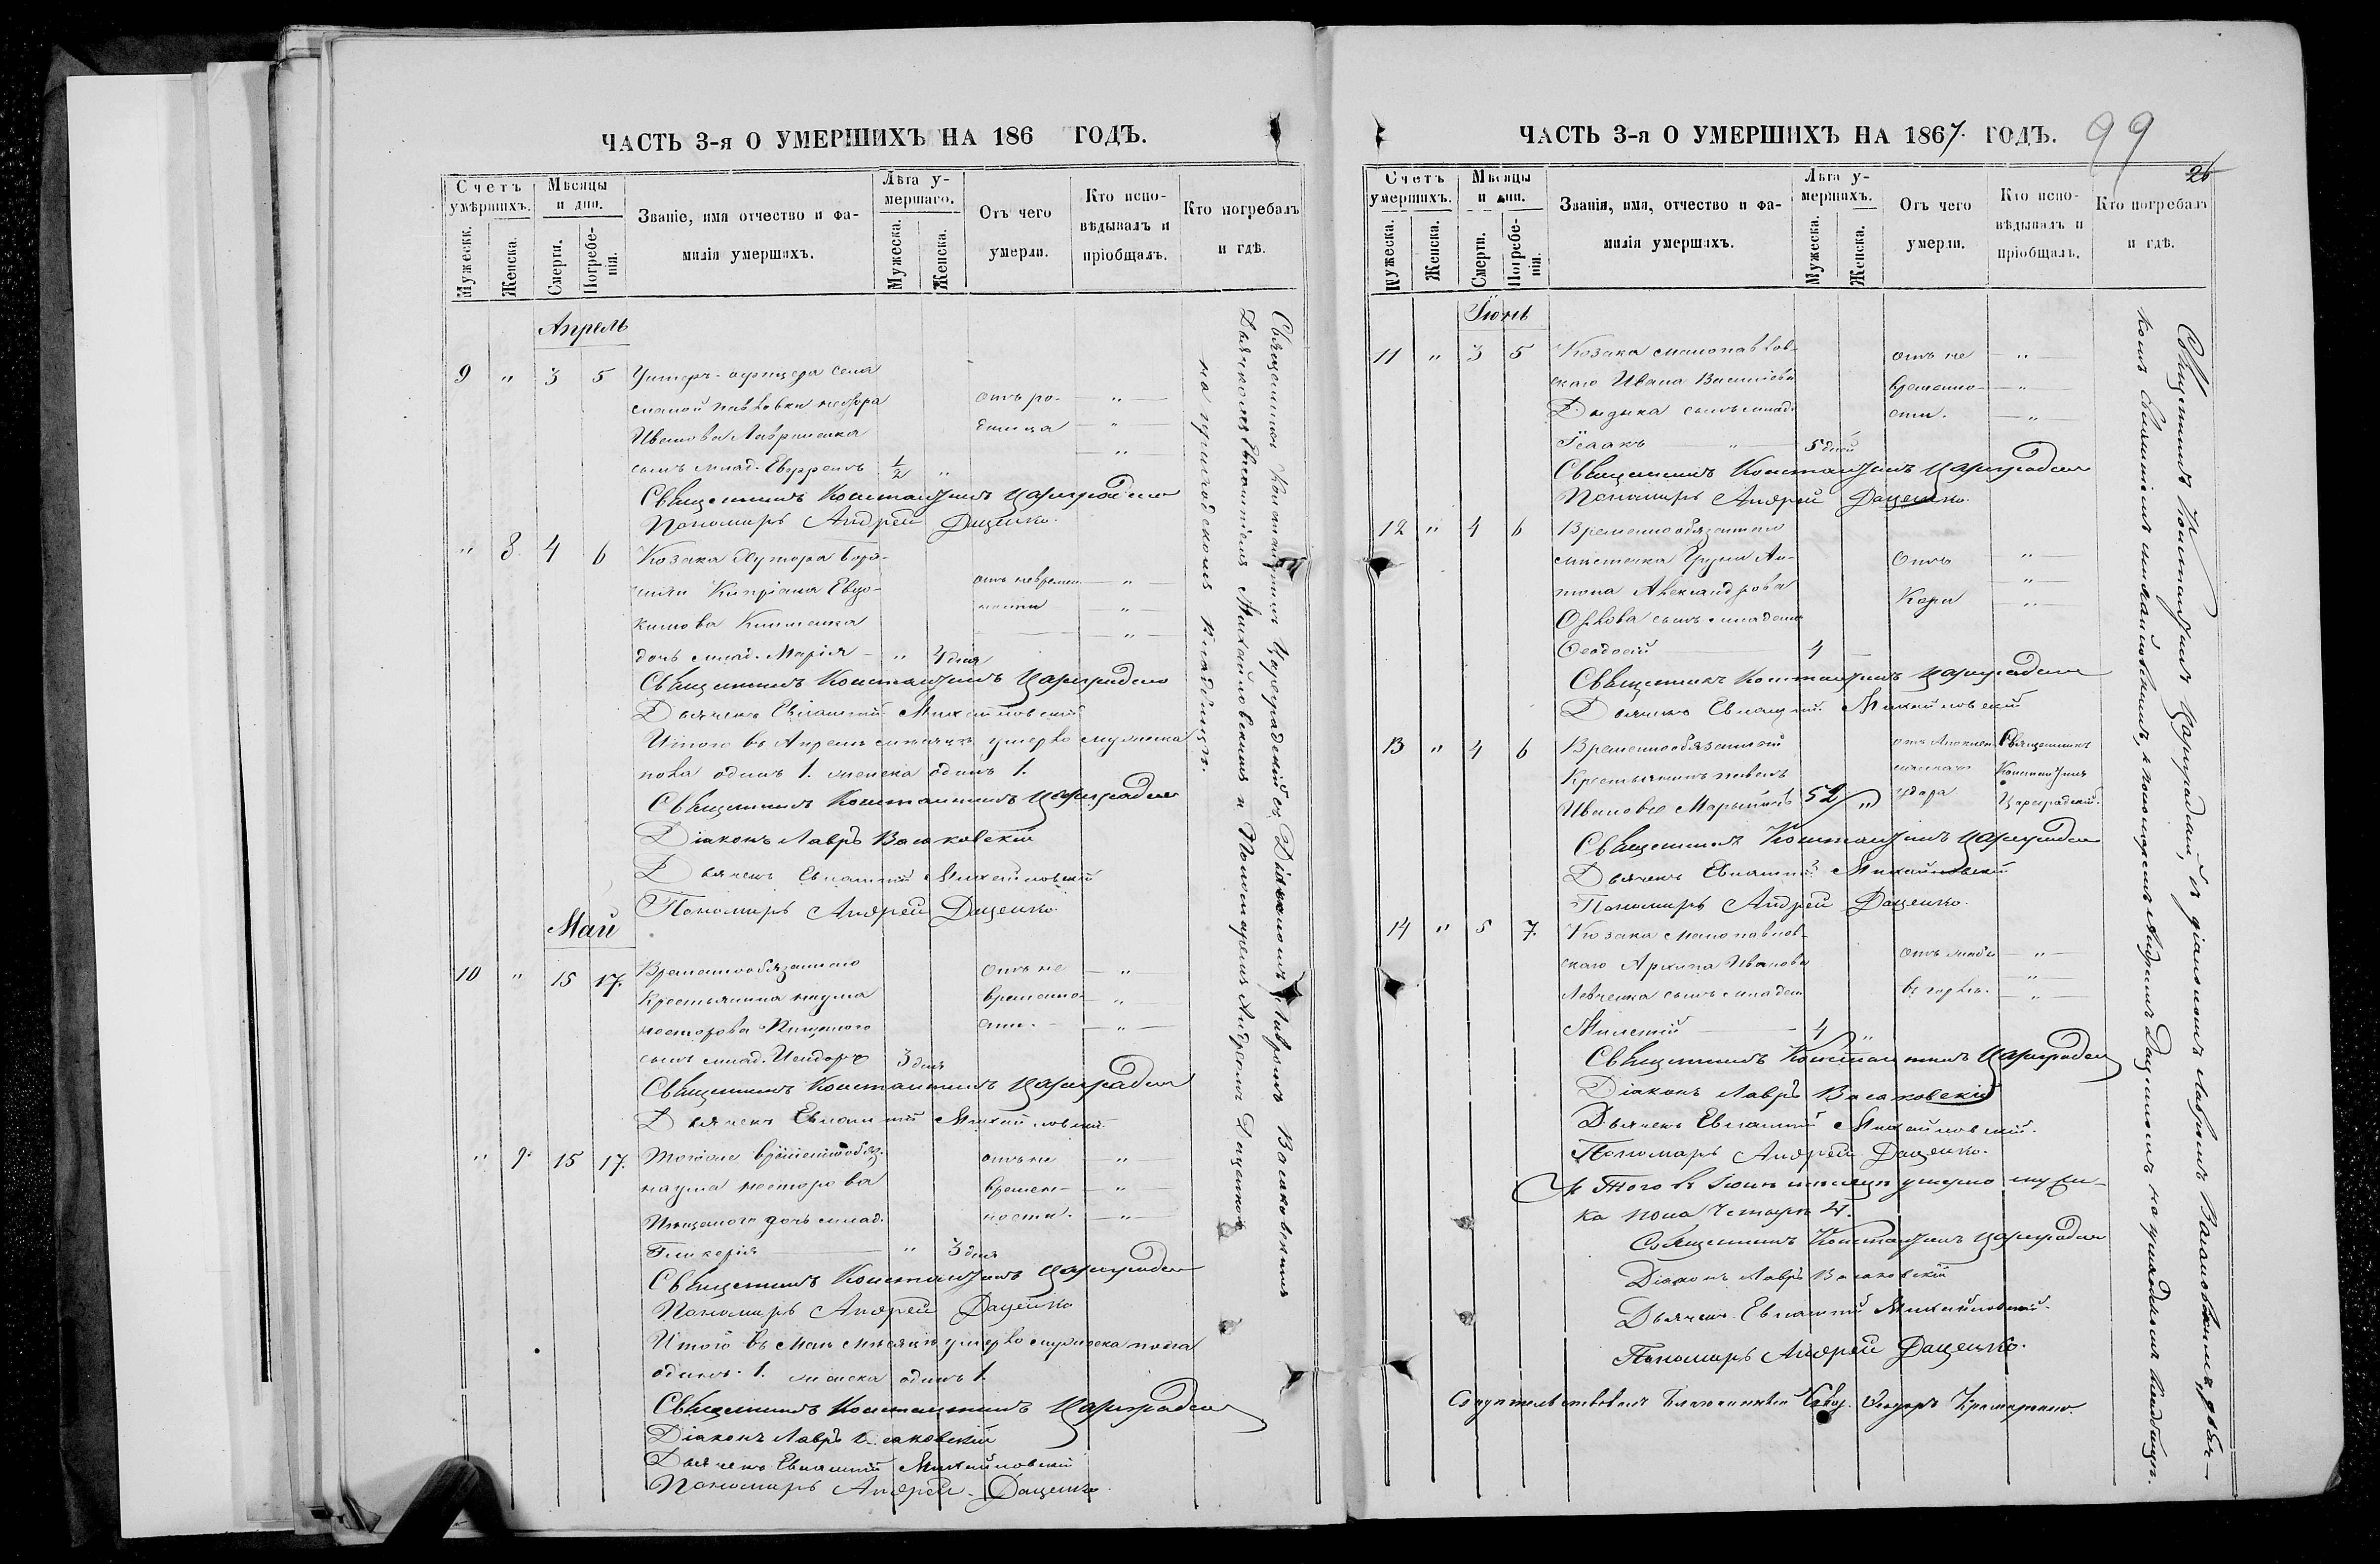 ЧАСТЬ 3-я О УМЕРШИХЪ НА 186 ГОДЪ.
Счетъ умѣршихъ.
Мужескк.
Женска.
Мѣсяцы и дни.
Смерти.
Погребе-
нія.
Званіе, имя отчество и фа-
милія умершихъ.
Лѣта у-
мершаго.
Мужеска.
Женска.
Отъ чего
умерли.
Кто испо-
вѣдывалъ и
пріобщалъ.
Кто погребалъ
и гдѣ.
Апрель
9 " 3 5 Унтеръ-офицера села
Малой Павловки
Иванова Лавриненка
сынъ млад. Евфремъ 1/2 "
отъ ро-
димца
Священникъ Константинъ Цареградскій
Пономарь Андрей Даценко.
" 8. 4 6 Козака хутора
Кипріана Евдо-
кимова
дочь млад. Марія " 4 дня
отъ невремен-
ности
Священникъ Константинъ Цареградскій
Дьячекъ Евлампій Михайловскій
Итого въ Апрелѣ мѣсяцѣ умерло мужеска
пола одинъ 1. женска одинъ 1.
Священникъ Константинъ Цареградскій
Діаконъ Лавръ Васаковскій
Дьячекъ Евлампій Михайловскій
Пономарь Андрей Даценко.
Май
10 " 15 17. Временнообязаннаго
Крестьянина Наума
Несторова
сынъ млад. 3 дня
отъ не
временно-
сти.
Священникъ Константинъ Цареградскій
Дьячекъ Евлампій Михайловскій
" 9. 15 17. Тогоже временнообяз.
Наума Несторова
дочь млад.
Гликерія " 3 дня
отъ не
времен-
ности.
Священникъ Константинъ Цареградскій
Пономарь Андрей Даценко
Итого въ Маѣ мѣсяцѣ умерло мужеска пола
одинъ 1. женска одинъ 1.
Священникъ Константинъ Цареградскій
Діаконъ Лавръ Васаковскій
Дьячекъ Евлампій Михайловскій
Пономарь Андрей Даценко.
Священникъ Константинъ Цареградскій съ Діакономъ Лавромъ Васаковскимъ
Дьячкомъ Евлампіемъ Михайловскимъ и Пономаремъ Андреемъ Даценкомъ
на приходскомъ кладбищѣ.
ЧАСТЬ 3-я О УМЕРШИХЪ НА 1867. ГОДЪ.
99
26
Счетъ
умершихъ.
Мужеска.
Женска.
Мѣсяцы
и дни.
Смерти.
Погребе-
нія.
Званія, имя, отчество и фа-
милія умершихъ.
Лѣта у-
мершихъ.
Мужеска.
Женска.
Отъ чего
умерли.
Кто испо-
вѣдывалъ и
пріобщалъ.
Кто погребалъ
и гдѣ.
Іюнь
11 " 3 5 Козака малопавлов-
скаго Ивана Васильева
сынъ млад.
Ісаакъ 5 дней
отъ не
временно-
сти.
Священникъ Константинъ Цареградскій
Пономарь Андрей Даценко.
12 " 4 6 Временнообязаннаго
Ан-
тона Александрова
Орлова сынъ младенецъ
Ѳеодосій 4
Отъ
Кори
Священникъ Константинъ Цареградскій
Дьячекъ Евлампій Михайловскій
13 " 4 6 Временнообязанный
Крестьянинъ Павелъ
Ивановъ 52 "
отъ Апоплек-
сическаго
удара
Священникъ
Константинъ
Цареградскій.
Священникъ Константинъ Цареградскій
Дьячекъ Евлампій Михайловскій
Пономарь Андрей Даценко.
14 " 5 7. Козака малопавлов-
скаго Архипа Иванова
Левченка сынъ младен.
Милетій 4 "
въ горлѣ.
Священникъ Константинъ Цареградскій
Діаконъ Лавръ Васаковскій
Дьячекъ Евлампій Михайловскій.
Пономарь Андрей Даценко.
Итого въ Іюнѣ мѣсяцѣ умерло мужес-
ка пола четыре 4.
Священникъ Константинъ Цареградскій
Діаконъ Лавръ Васаковскій
Дьячекъ Евлампій Михайловскій.
Пономарь Андрей Даценко.
Священникъ Константинъ Цареградскій, съ діакономъ Лавромъ Васаковскимъ, дьяч-
комъ Евлампіемъ Михайловскимъ, и пономаремъ Андреемъ Даценкомъ на приходскомъ кладбищѣ.